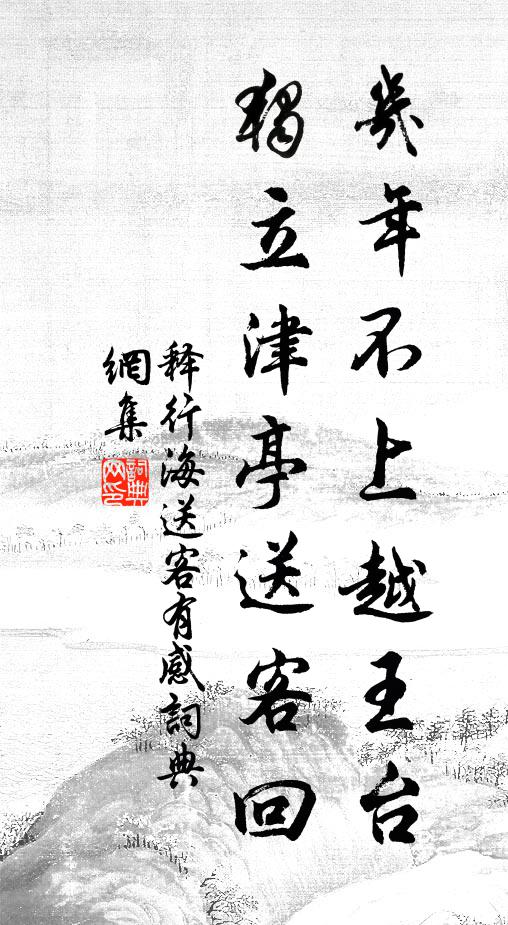 幾年不上越王台
獨立津亭送客回
释行海送客有感詞典
網集
詞典
网印